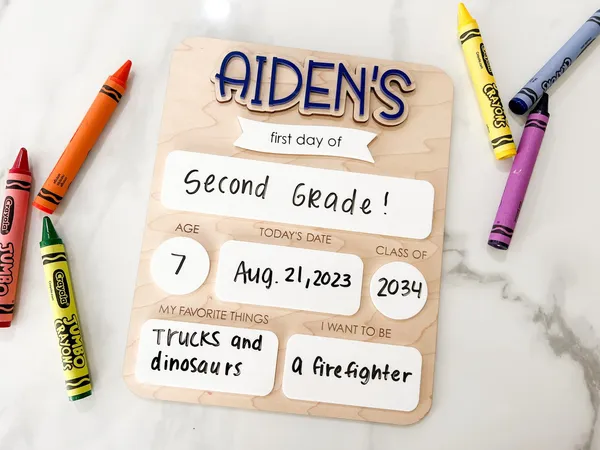 AIDEN'S
first day of
Second Grade!
AGE
TODAY'S DATE
CLASS OF
7
Aug. 21, 2023
2034
MY FAVORITE THINGS
I WANT TO BE
TRUCKS and
dinosaurs
a firefighter
Crayola
JUMBO
Crayola
JUMBO
CRAYONS
CRAYONS